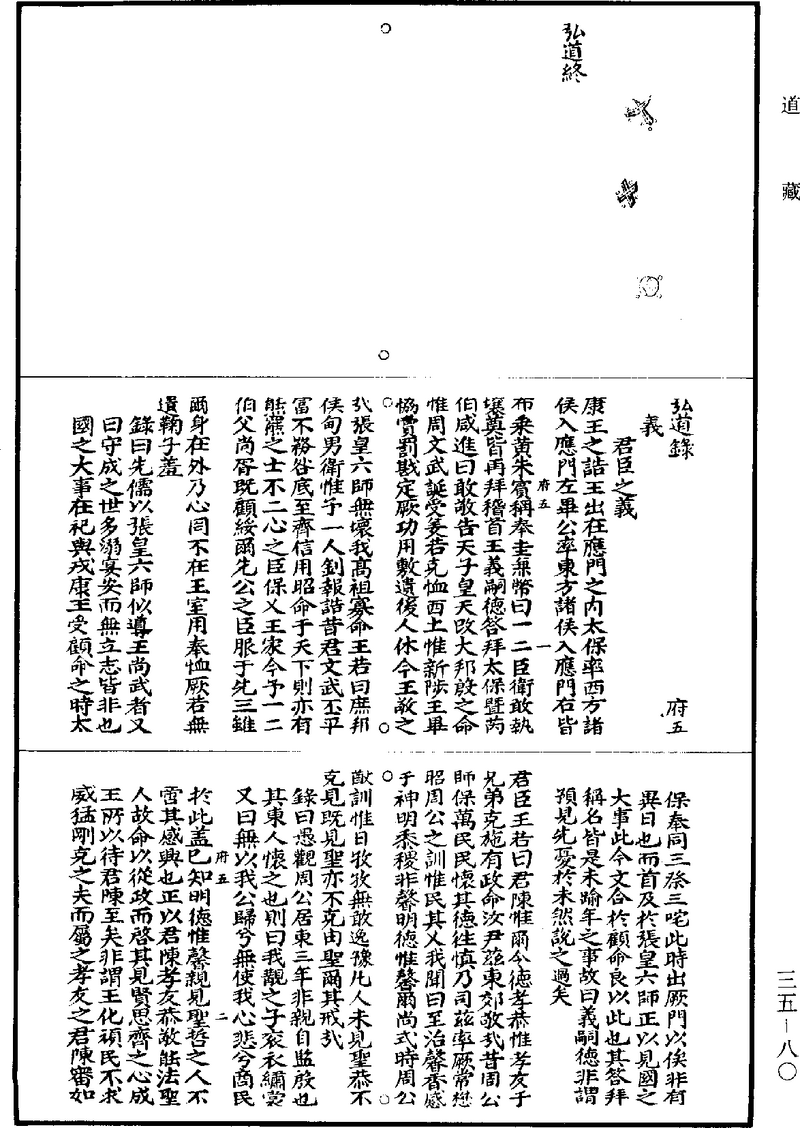 道藏
弘道終
弘道錄
府五
義
君臣之義
康王之誥王出在應門之內太保率西方諸
侯入應門左畢公率東方諸侯入應門右皆
布乘黃朱賓稱奉圭兼幣曰一二臣衛敢執
壤奠皆再拜稽首王義嗣德答拜太保暨芮
伯咸進曰敢敬告天子皇天改大邦殷之命
惟周文武誕受羑若克恤西土惟新陟王畢
恊賞罰戡定厥功用敷遺後人休今王敬之
哉張皇六師無壞我高祖寡命王若曰庶邦
侯甸男衛惟予一人釗報誥昔君文武丕平
富不務咎底至齊信用昭明于天下則亦有
熊羆之士不二心之臣保乂王家今予一二
伯父尚胥既顧綏爾先公之臣服于先王雖
爾身在外乃心罔不在王室用奉恤厥若無
遺鞠子羞
錄曰先儒以張皇六師似導王尚武者又
曰守成之世多溺宴安而無立志皆非也
國之大事在祀與戎康王受顧命之時太
府五
一
保奉同三祭三咤此時出厥門以俟非有
異日也而首及於張皇六師正以見國之
大事此今文合於顧命良以此也其答拜
稱名皆是未踰年之事故曰義嗣德非謂
預見先憂於未然說之過矣
君臣王若曰君陳惟爾令德孝恭惟孝友于
兄弟克施有政命汝尹茲東郊敬哉昔周公
師保萬民民懷其德往慎乃司茲率厥常懋
昭周公之訓惟民其乂我聞曰至治馨香感
于神明黍稷非馨明德惟馨爾尚式時周公
猷訓惟日孜孜無敢逸豫凡人未見聖恭不
克見既見聖亦不克由聖爾其戒哉
錄曰愚觀周公居東三年非親自監殷也
其東人懷之也則曰我覯之子袞衣繡裳
又曰無以我公歸兮無使我心悲兮商民
於此蓋已知明德惟馨親見聖哲之人不
啻其感興也正以君陳孝友恭敬能法聖
人故命以從政而啓其見賢思齊之心成
王所以待君陳至矣非謂王化頑民不求
威猛剛克之夫而屬之孝友之君陳審如
府五
二
三五-八〇